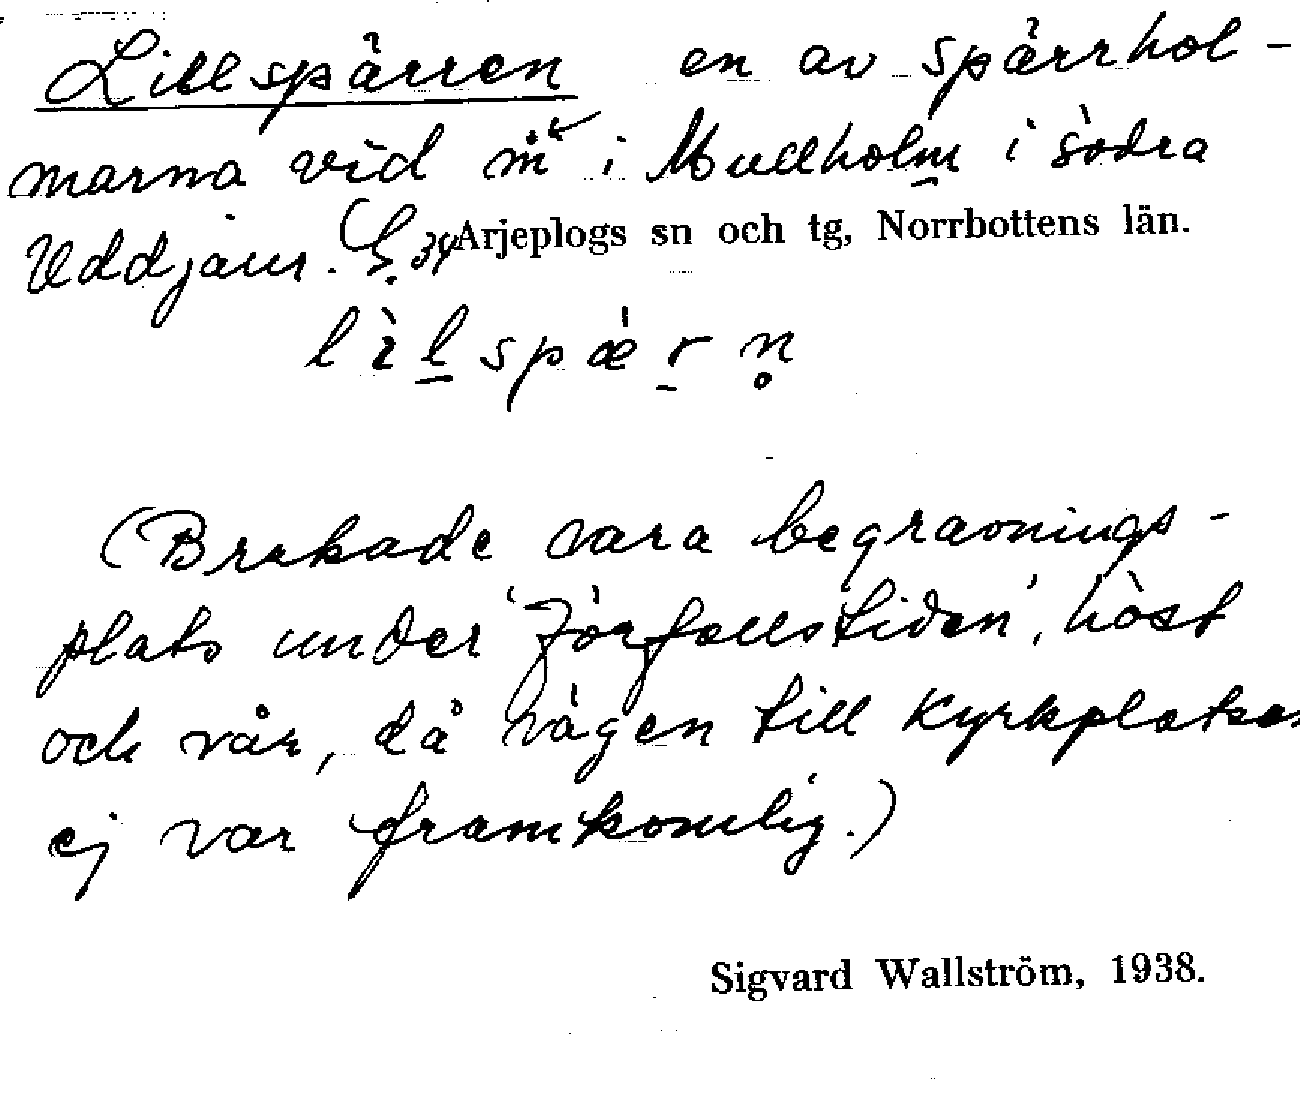 Lillspärren en av spärrhol-
marna vid m i Mullholm i södra
Uddjaur. 34 Arjeplogs sn och tg, Norrbottens län.
lìlspærn̥
(Brukade vara begravnings-
plats under 'förfallstiden', höst
och vår, då vägen till kyrkplatsen
ej var framkomlig.)
Sigvard Wallström, 1938.